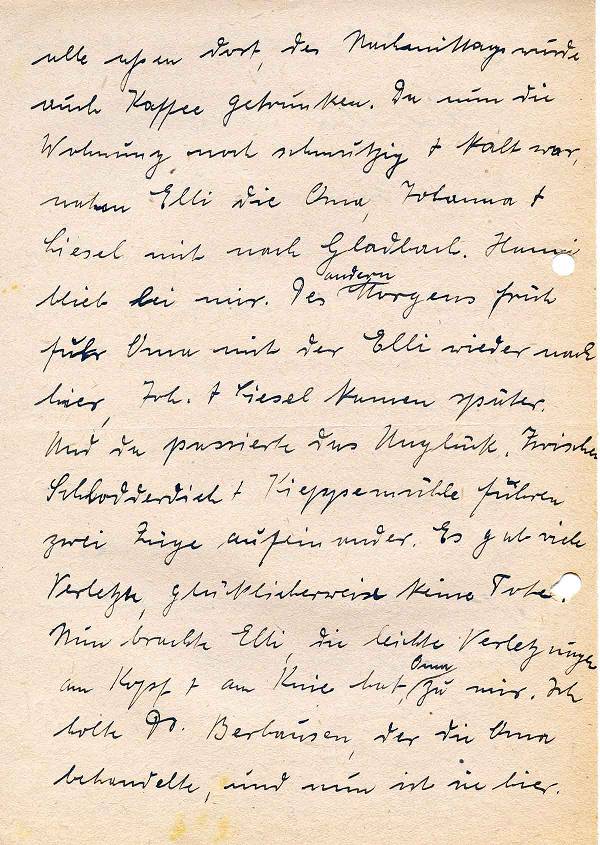 alle assen dort, des Nachmittags wurde
auch Kaffee getrunken. Da nun die
Wohnung noch schmutzig + kalt war,
nahm Elli die Oma, Johanna +
Liesel mit nach Gladbach. Hanni
blieb bei mir. Des andern Morgens früh
fuhr Oma mit der Elli wieder nach
hier, Joh. + Liesel kamen später.
Und da passierte das Unglück. Zwischen
Schlodderdich + Kieppemühle fuhren
zwei Züge aufeinander. Es gab viele
Verletzte, glücklicherweise keine Toten.
Nun brachte Elli, die leichte Verletzungen
am Kopf + am Knie hat, Oma zu mir. Ich
holte Dr. Berhausen, der die Oma
behandelte, und nun ist sie hier.